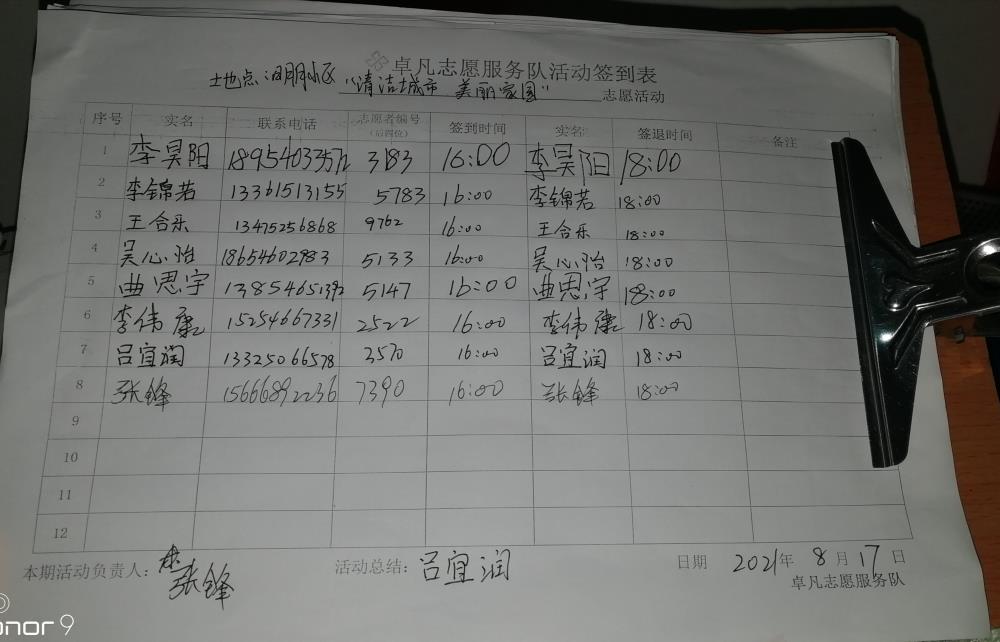 卓凡志愿服务队活动签到表
地点:明小区 "清洁城市 美丽家园" 志愿活动
序号 实名 联系电话 志愿者编号(后四位) 签到时间 实名 签退时间 备注
1 李昊阳 18954033572 3183 16:00 李昊阳 18:00
2 李锦若 13361513155 5783 16:00 李锦若 18:00
3 王合乐 13475256868 9762 16:00 王合乐 18:00
4 吴心怡 18654602983 5133 16:00 吴心怡 18:00
5 曲思宇 13854651392 5147 16:00 曲思宇 18:00
6 李伟康 15254667331 2522 16:00 李伟康 18:00
7 吕宜润 13325066578 3570 16:00 吕宜润 18:00
8 张锋 15666892236 7390 16:00 张锋 18:00
9
10
11
12
本期活动负责人: 张锋 活动总结: 吕宜润 日期 2021年 8月17日
卓凡志愿服务队
onor 9